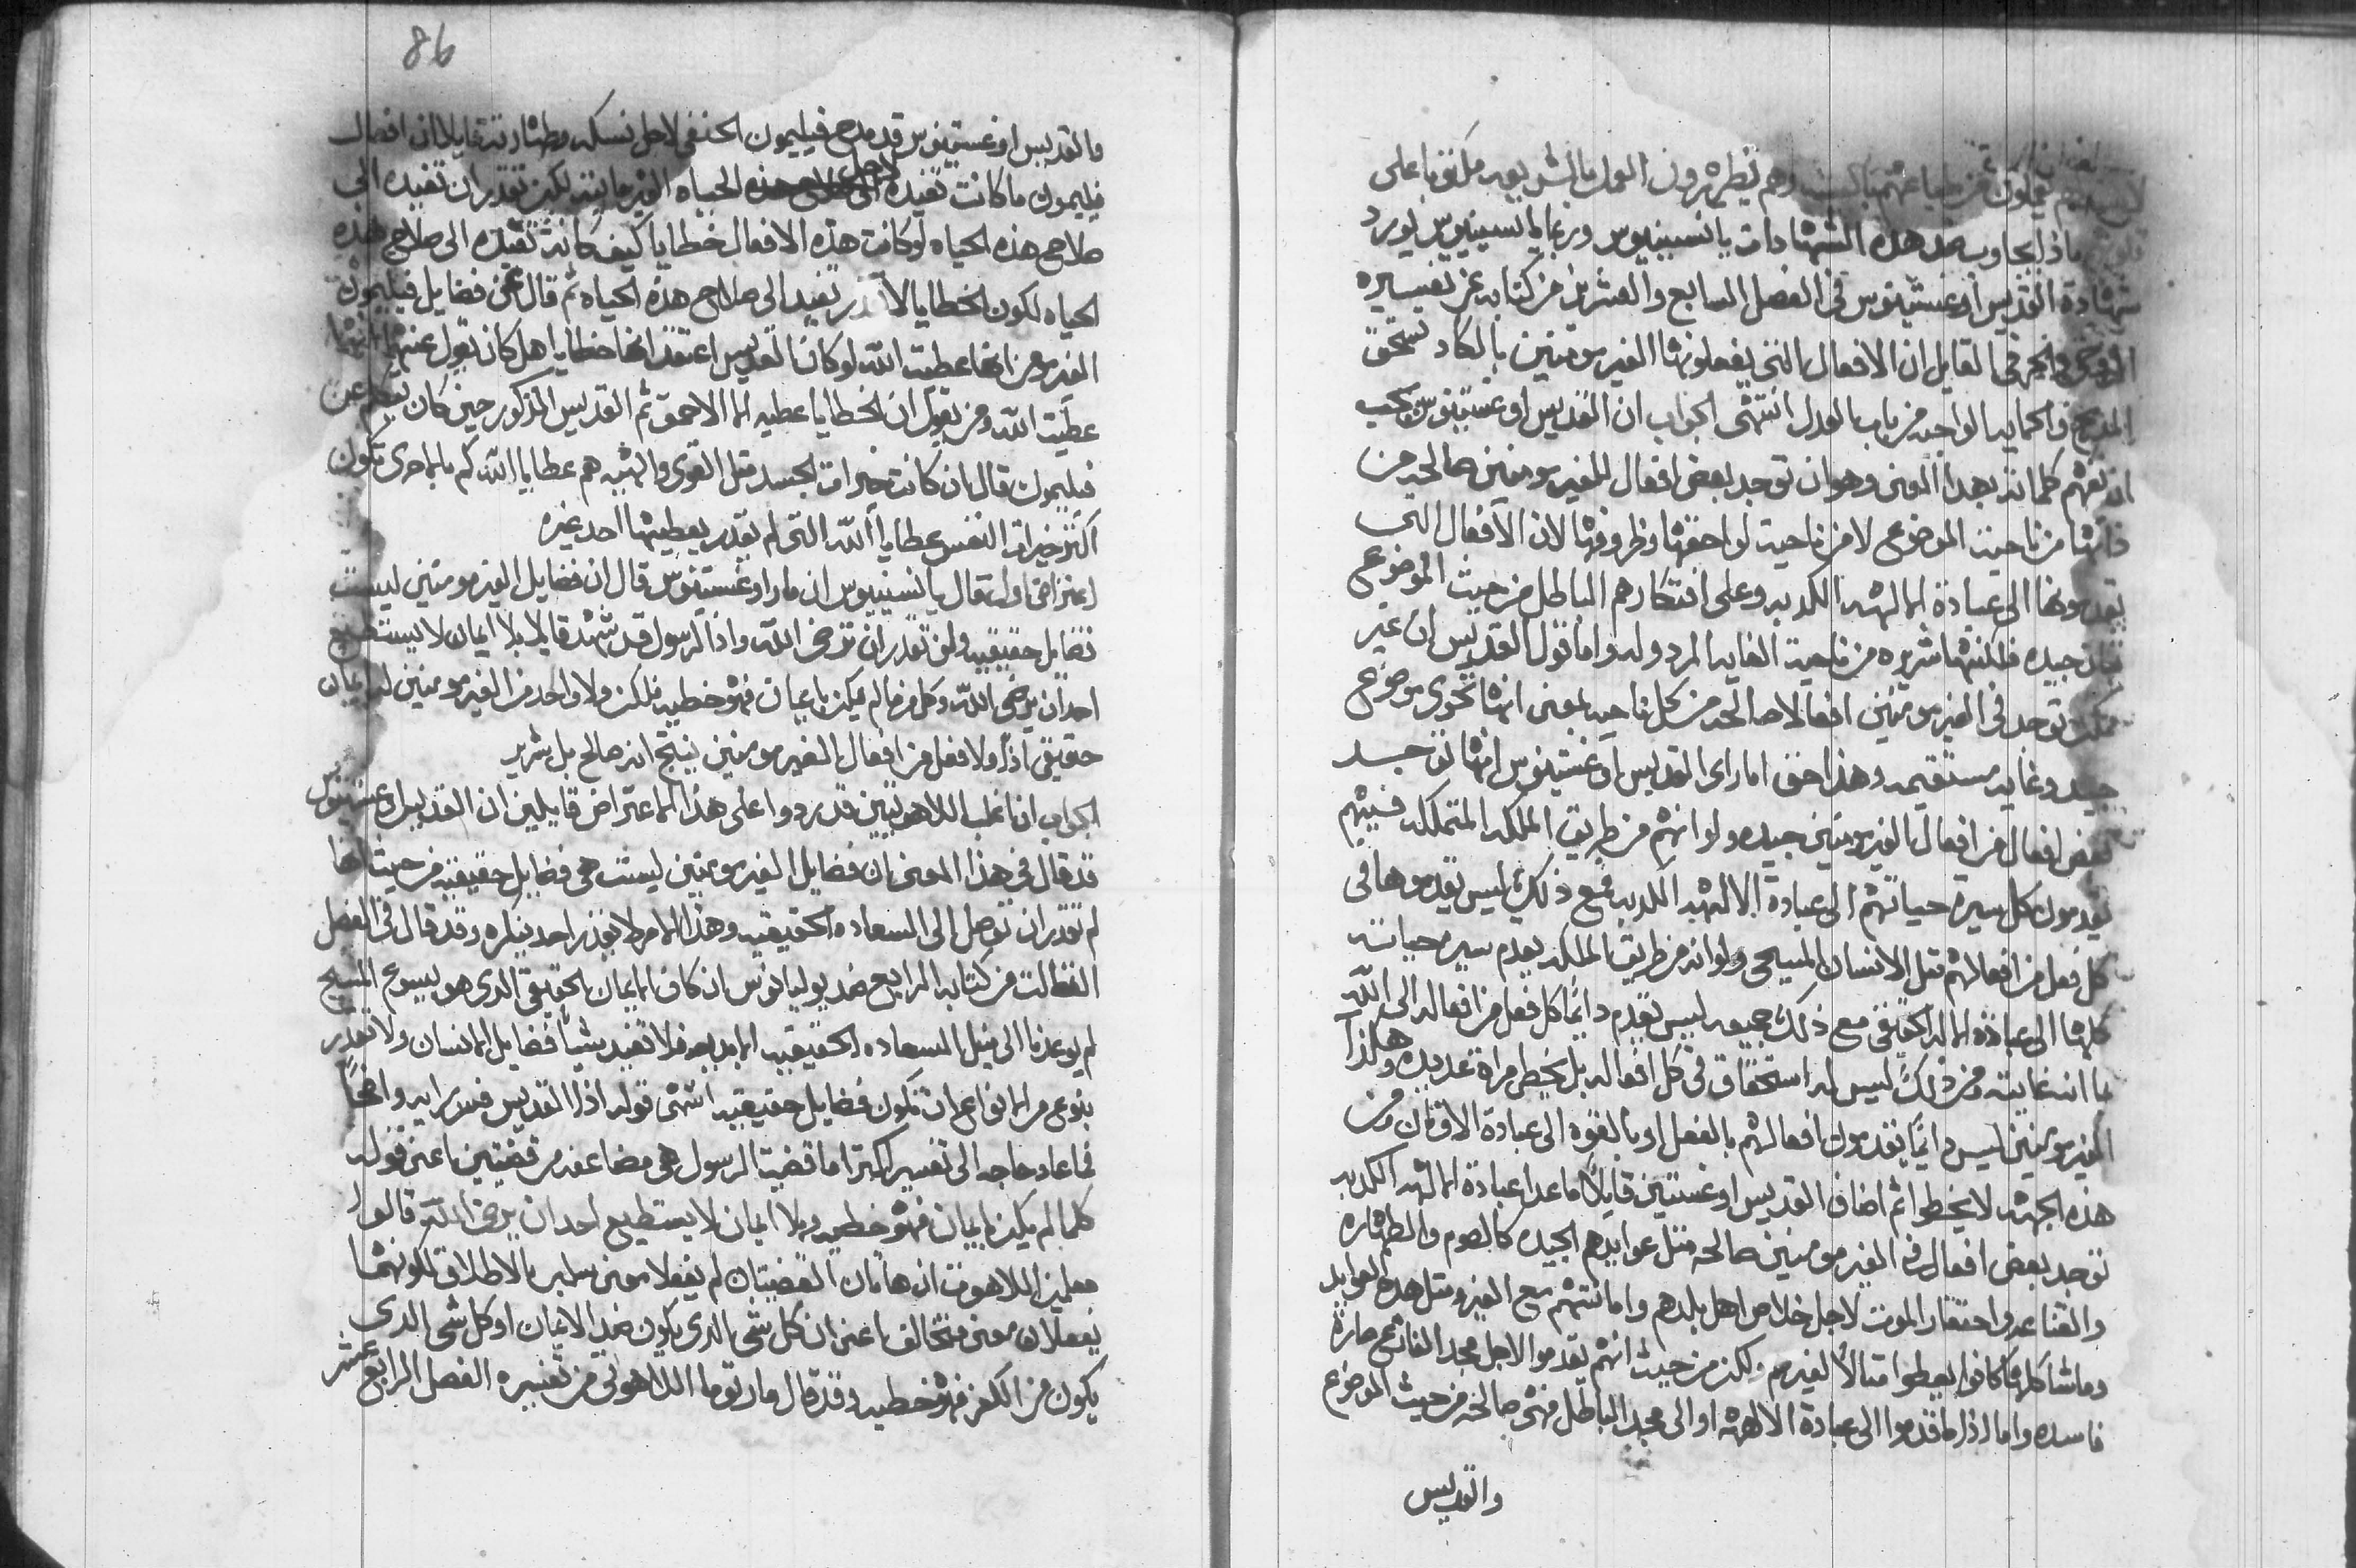 لهم يعملون عن طباعهم بالسنه وهم يظهرون العمل بالشريعه مكتوبا على
قلوبهم ماذا يجاوب ضد هذه الشهادات يانسينيوس وربما يانسينيوس يورد
شهادة القديس اوغستينوس في الفصل السابع والعشرين من كتابه عن تفسيره
الروح والحرف القايل ان الافعال التي يفعلونها الغير مومنين بالكاد تستحق
المديح والحمايه الواجبه من باب العدل انتهى الجواب ان القديس اوغستينوس يجب
ان تفهم كلماته بهذا المعنى وهو ان توجد بعض افعال للغير مومنين صالحه من
ذاتها من ناحيت الموضوع لا من ناحيت لواحقها وظروفها لان الافعال التي
يقدموها الى عبادة الالهه الكدبه وعلى افتكارهم الباطل من حيث الموضوع
فان جيده فلكنها شريره من ناحيت الغايه المردوله واما قول القديس ان غير
ممكن توجد في الغير مومنين افعالا صالحه من كل ناحيه بمعنى انها تحوي موضوع
جيد وغايه مستقيمه وهذا حق اما راى القديس اوغستينوس انها توجد
بعض افعال من افعال الغير مومنين جيده ولو انهم من طريق الملكه المتملكه فيهم
يقدمون كل سيرة حياتهم الى عبادة الالهه الكدبه فمع ذلك ليس يقدموها في
كل فعل من افعالهم مثل الانسان المسيحي ولو انه من طريق الملكه يقدم سيرة حياته
كلها الى عبادة الاله الحقيقي مع ذلك جميعه ليس يقدم دائما كل فعل من افعاله الى الله
بما انه غايته ومن ذلك ليس له استحقاق في كل افعاله بل يخطي مرة عديده وهكذا
الغير مومنين ليس دائما يقدمون افعالهم بالفعل او بالقوه الى عبادة الاوثان ومن
هذه الجهه لا يخطوا ثم اضاف القديس اوغستين قايلا ما عدا عبادة الالهه الكدبه
توجد بعض افعال في الغير مومنين صالحه مثل عوايدهم الجيده كالصوم والطهاره
والقناعه واحتقار الموت لاجل خلاص اهل بلدهم وامانتهم مع الغير ومثل هذه العوايد
وما شاكلها كانوا يعطوا مثالا لغيرهم ولكن من حيث انهم يقدموا لاجل مجد الفانع صارة
فاسده واما اذا ما قدموا الى عبادة الالهه او الى مجد الباطل فهي صالحه من حيث الموضوع
والقديس
86
والقديس اوغستينوس قد مدح فيليمون الحنفي لاجل نسكه وطهارته قايلا ان افعال
فيليمون ما كانت تفيده لاجل الحياه الغير مايته لكن تقدر ان تفيده الى
صلاح هذه الحياه لو كانت هذه الافعال خطايا كيف كانت تفيده الى صلاح هذه
الحياه لكون الخطايا لا تقدر تفيد الى صلاح هذه الحياه ثم قال عن فضايل فيليمون
المذمومن انها عطيت الله لو كان القديس اعتقد انها خطايا هل كان يقول عنها انها
عطيت الله ومن يقول ان الخطايا عطيه الا الاحمق ثم القديس المذكور حين كان يتكلم عن
فيليمون قال ان كانت خيرات الجسد مثل القوى والشبه هم عطايا الله كم بالحرى تكون
اكثر خيرات النفس عطايا الله التي لم يقدر يعطيها احد غيره
اعتراض اول قال يانسينيوس ان مار اوغستينوس قال ان فضايل الغير مومنين ليست
فضايل حقيقيه ولن تقدر ان ترضي الله واذا الرسول قد شهد قايلا بلا ايمان لا يستطيع
احد ان يرضي الله وكل من ما لم يكن بايمان فهو خطيه فلكن ولا واحد من الغير مومنين له ايمان
حقيقي اذا ولا فعل من افعال الغير مومنين ينتج انه صالح بل شرير
الجواب ان اغلب اللاهوتيين قد ردوا على هذا الاعتراض قايلين ان القديس اوغستينوس
قد قال في هذا المعنى ان فضايل الغير مومنين ليست هي فضايل حقيقيه من حيث انها
لم تقدر ان توصل الى السعاده الحقيقيه وهذا الامر لا يقدر احد ينكره وقد قال في الفصل
الثالث من كتابه الرابع ضد يوليانوس ان كان الايمان الحقيقي الذي هو يسوع المسيح
لم يوعدنا الى نيل السعاده الحقيقيه الابديه فلا تفيد شيا فضايل الانسان ولا تقدر
بنوع من الانواع ان تكون فضايل حقيقيه انتهى قوله اذا القديس فسر رايه واضحا
فما عاد حاجه الى تفسير اكثر اما قضيت الرسول هي مضاعفه من قضيتين اعني قوله
كلما لم يكن بايمان فهو خطيه وبلا ايمان لا يستطيع احد ان يرضي الله قالوا
معلمين اللاهوت ان هاتان القضيتان لم يفعلا معنى سلبي بالاطلاق لكونهما
يفعلان معنى متخالف اعني ان كل شي الذي يكون ضد الايمان او كل شي الذي
يكون من الكفر فهو خطيه وقد قال مار توما اللاهوتي من تفسيره الفصل الرابع عشر